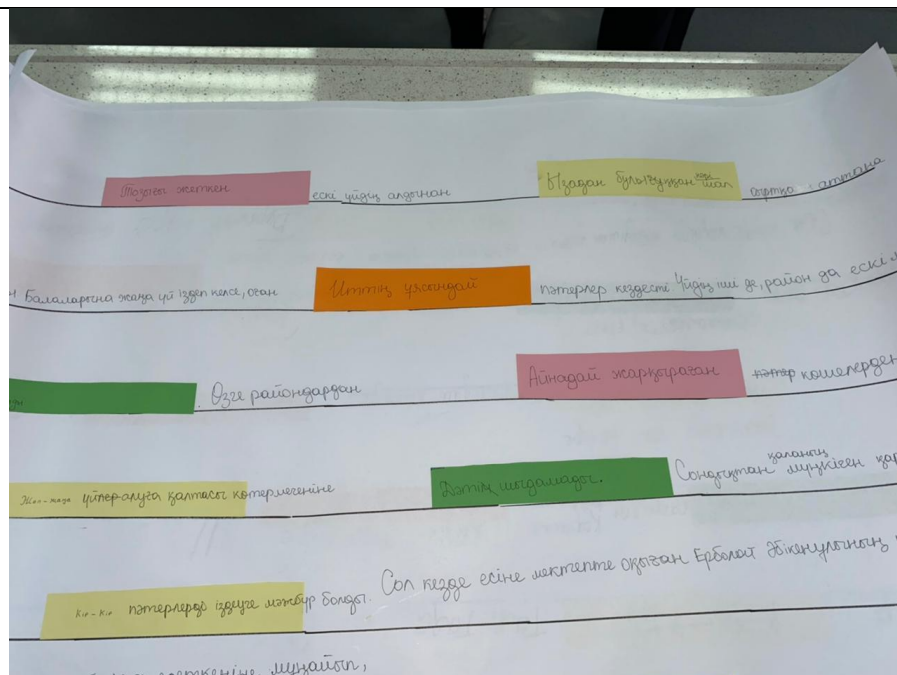 Тозығы жеткен ескі үйдің алдынан Ызадан булыққан кәрі шал атқа аттана
Балаларына жаңа үй іздеп келсе, оған Иттің ұясындай пәтерлер кездесті. Үйдің іші де, район да ескі
Өзге райондардан Айнадай жарқыраған пәтер көшелерден
Жап-жаңа үйлер алуға қалтасы көтермегеніне Дәтің шыдамады. Сондықтан қаланың мүңкіген
Кір-Кір пәтерлерді іздеуге мәжбүр болды. Сол кезде есіне мектепте оқыған Ерболат Әбікенұлының
мұңайып,